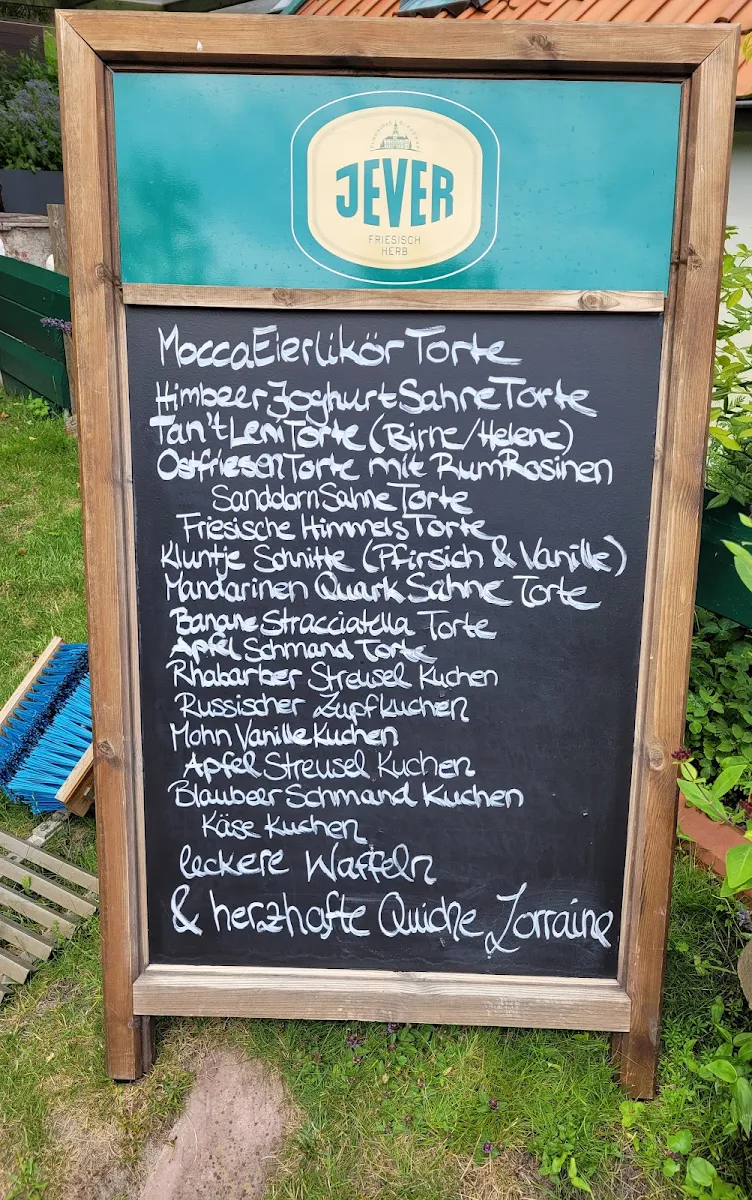 JEVER
FRIESISCH
HERB
MoccaEierlikörTorte
HimbeerJoghurtSahneTorte
Tan'tLeniTorte (Birne/Helene)
OstfriesenTorte mit RumRosinen
SanddornSahneTorte
Friesische HimmelsTorte
Kluntje Schnitte (Pfirsich & Vanille)
Mandarinen Quark Sahne Torte
Banane Stracciatella Torte
Apfel Schmand Torte
Rhabarber Streusel Kuchen
Russischer Zupfkuchen
Mohn Vanille Kuchen
Apfel Streusel Kuchen
Blaubeer Schmand Kuchen
Käse Kuchen
leckere Waffeln
& herzhafte Quiche Lorraine